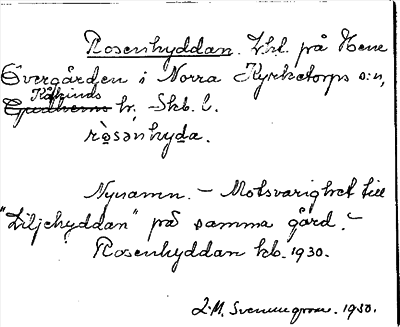 Rosenhyddan. Lhl. på Hene
Övergården i Norra Kyrketorps s:n,
Kåkinds
Gudhems hr. Skb. l.
ròsənhyda.
Nynamn. – Motsvarighet till
"Liljehyddan" på samma gård. –
Rosenhyddan kb. 1930.
L.M. Svenungsson. 1950.